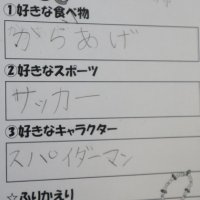 ①好きな食べ物
からあげ
②好きなスポーツ
サッカー
③好きなキャラクター
スパイダーマン
☆ふりかえり